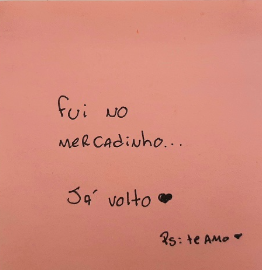 Fui no
mercadinho...
Já volto ♥
Ps: te amo ♥